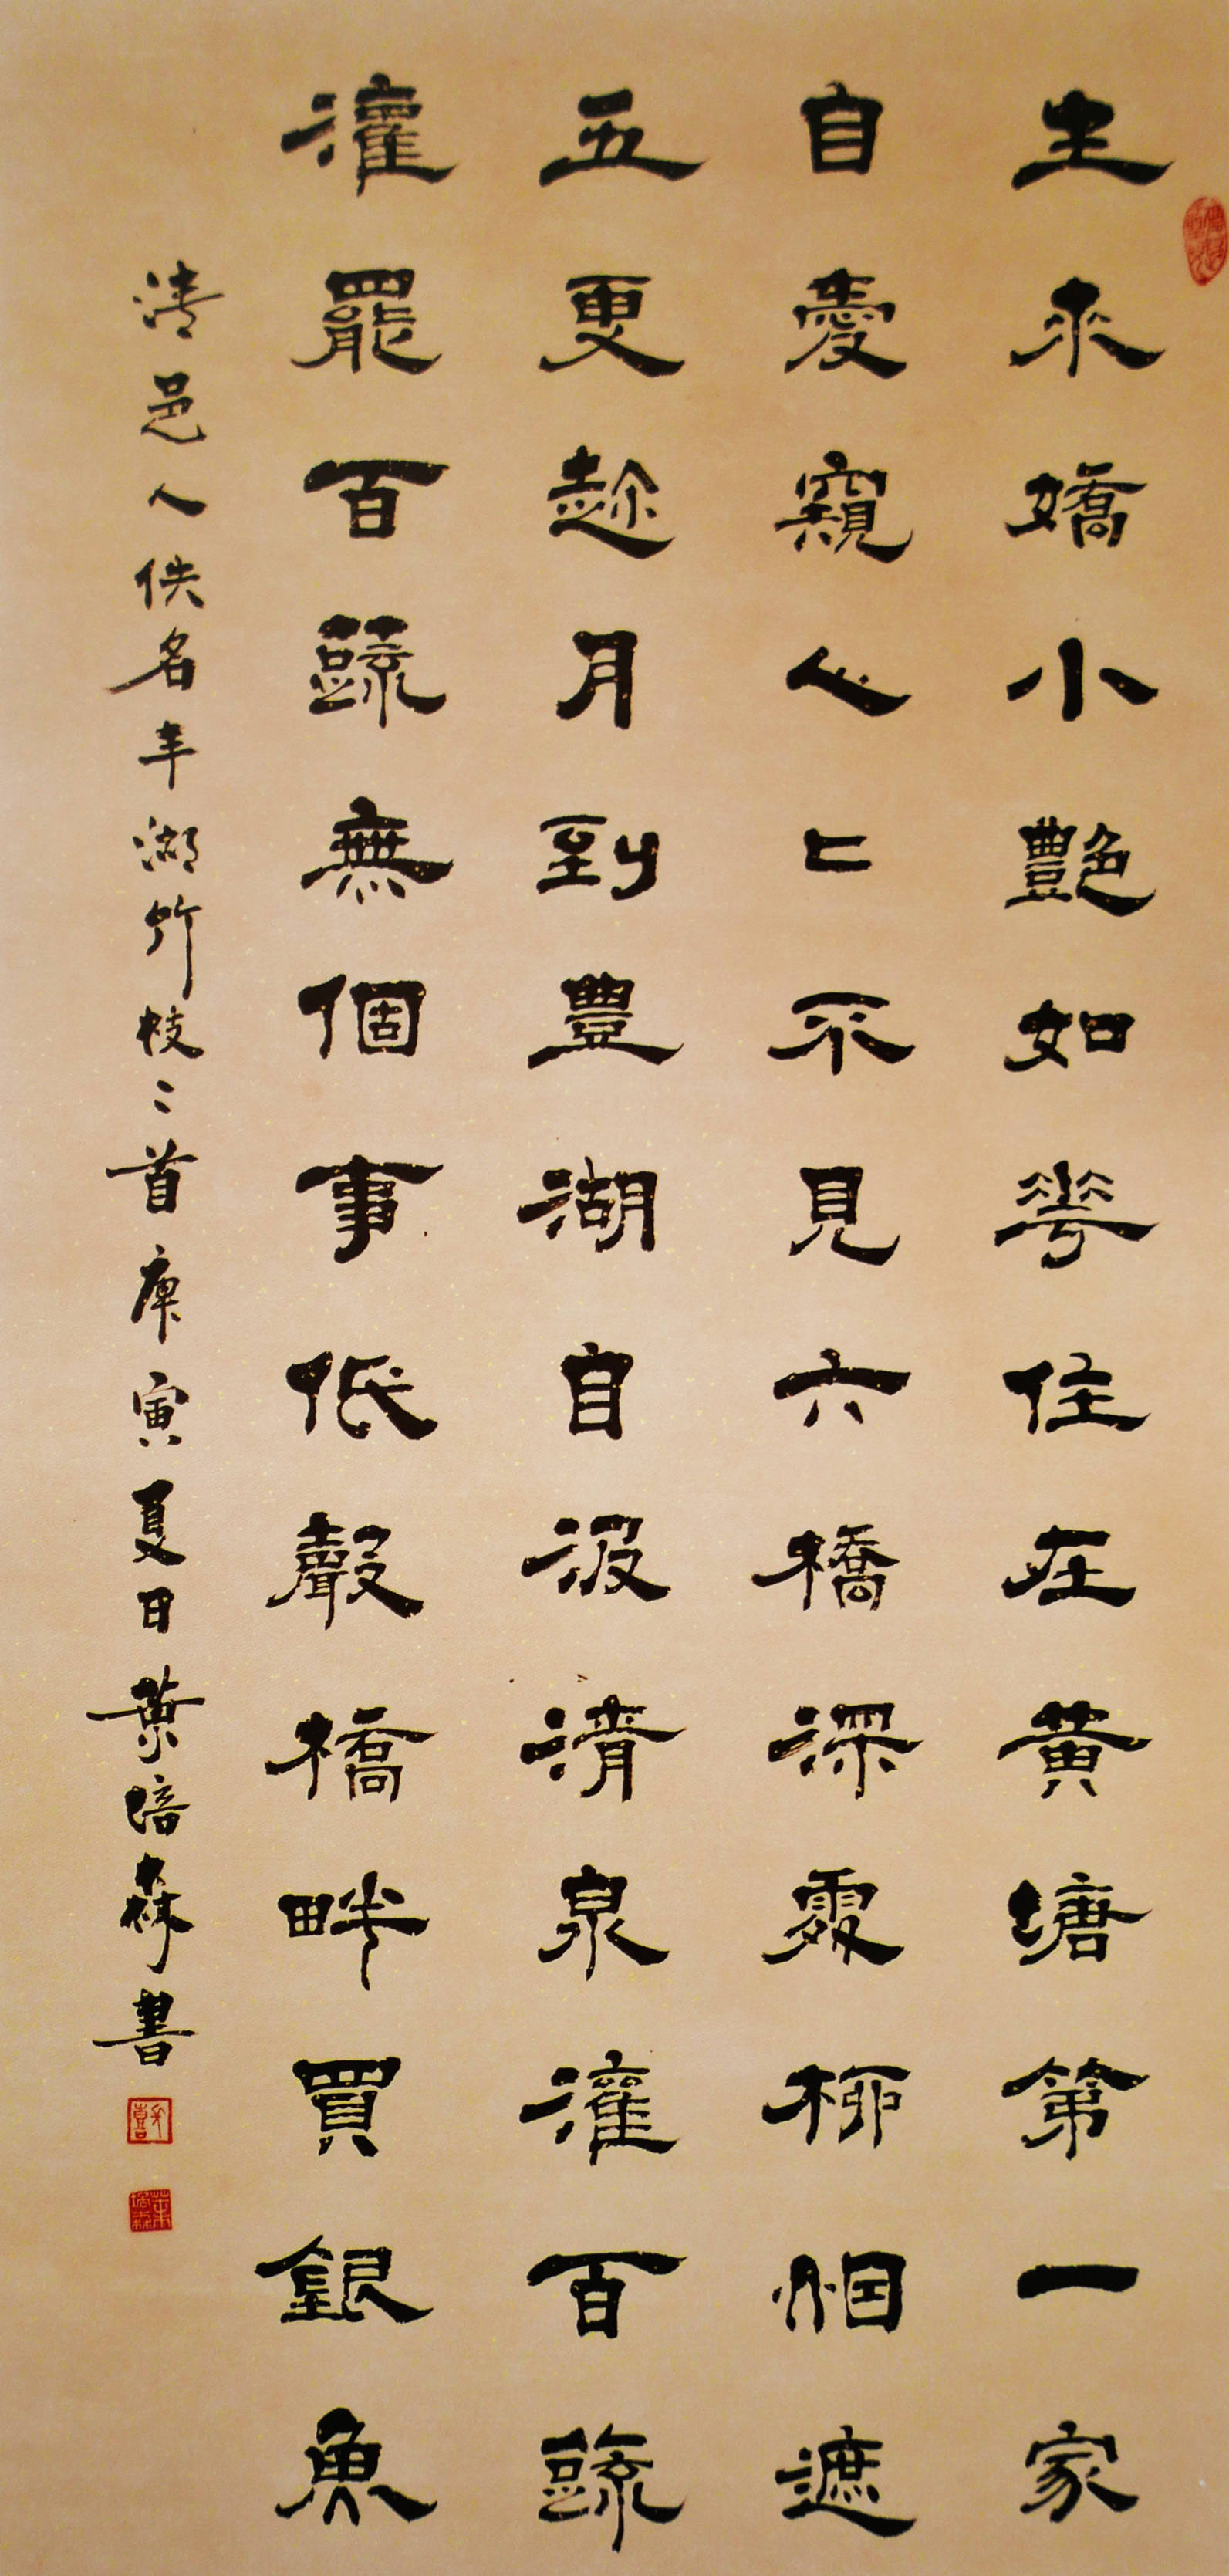 生來嬌小艷如花住在黃塘第一家
自愛窺人人不見六橋深處柳烟遮
五更趁月到豐湖自汲清泉灌百蔬
灌罷百蔬無個事低聲橋畔買銀魚
清邑人佚名丰湖竹枝二首庚寅夏日葉培森書